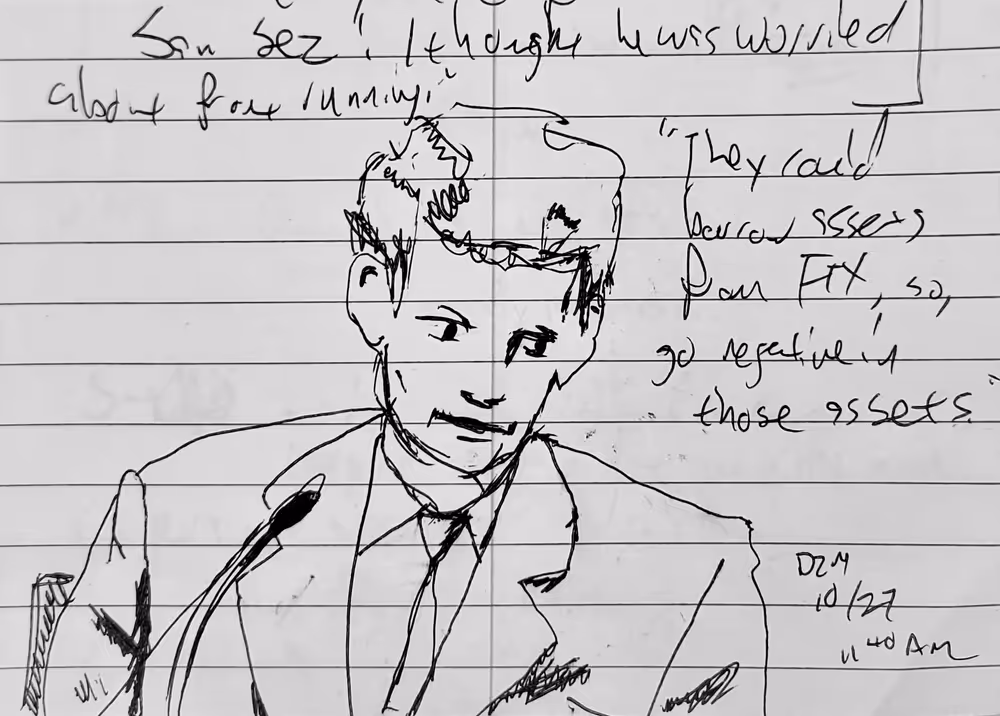 San Sez: "I thought he was worried
about front running."
"They could
borrow assets
from FTX, so,
go negative in
those assets"
DZM
10/27
11 40 AM